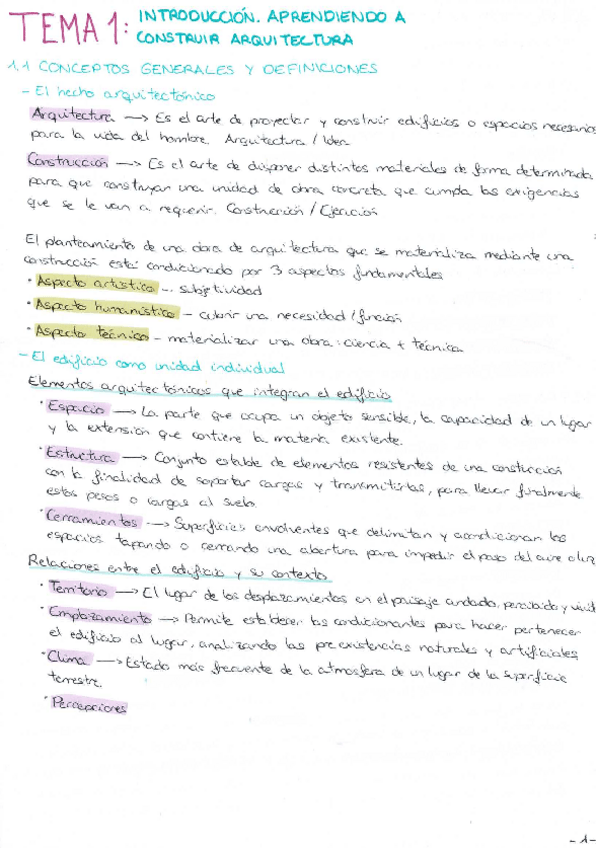 TEMA 1: INTRODUCCIÓN. APRENDIENDO A
CONSTRUIR ARQUITECTURA
1.1 CONCEPTOS GENERALES Y DEFINICIONES
- El hecho arquitectónico
Arquitectura → Es el arte de proyectar y construir edificios o espacios necesarios
para la vida del hombre. Arquitectura / Idea
Construcción → Es el arte de disponer distintos materiales de forma determinada
para que construyan una unidad de obra concreta que cumpla las exigencias
que se le van a requerir. Construcción / Ejecución
El planteamiento de una obra de arquitectura que se materializa mediante una
construcción está condicionado por 3 aspectos fundamentales
· Aspecto artístico - subjetividad
· Aspecto humanístico - cubrir una necesidad / función
· Aspecto técnico - materializar una obra: ciencia + técnica
- El edificio como unidad individual
Elementos arquitectónicos que integran el edificio
· Espacio → La parte que ocupa un objeto sensible, la capacidad de un lugar
y la extensión que contiene la materia existente.
· Estructura → Conjunto estable de elementos resistentes de una construcción
con la finalidad de soportar cargas y transmitirlas, para llevar finalmente
estos pesos o cargas al suelo.
· Cerramientos → Superficies envolventes que delimitan y acondicionan los
espacios tapando o cerrando una abertura para impedir el paso del aire o luz
Relaciones entre el edificio y su contexto
· Territorio → El lugar de los desplazamientos en el paisaje andado, percibido y
· Emplazamiento → Permite establecer los condicionantes para hacer pertenecer
el edificio al lugar, analizando las preexistencias naturales y artificiales
· Clima → Estado más frecuente de la atmosfera de un lugar de la superficie
terrestre.
· Percepciones
-1-